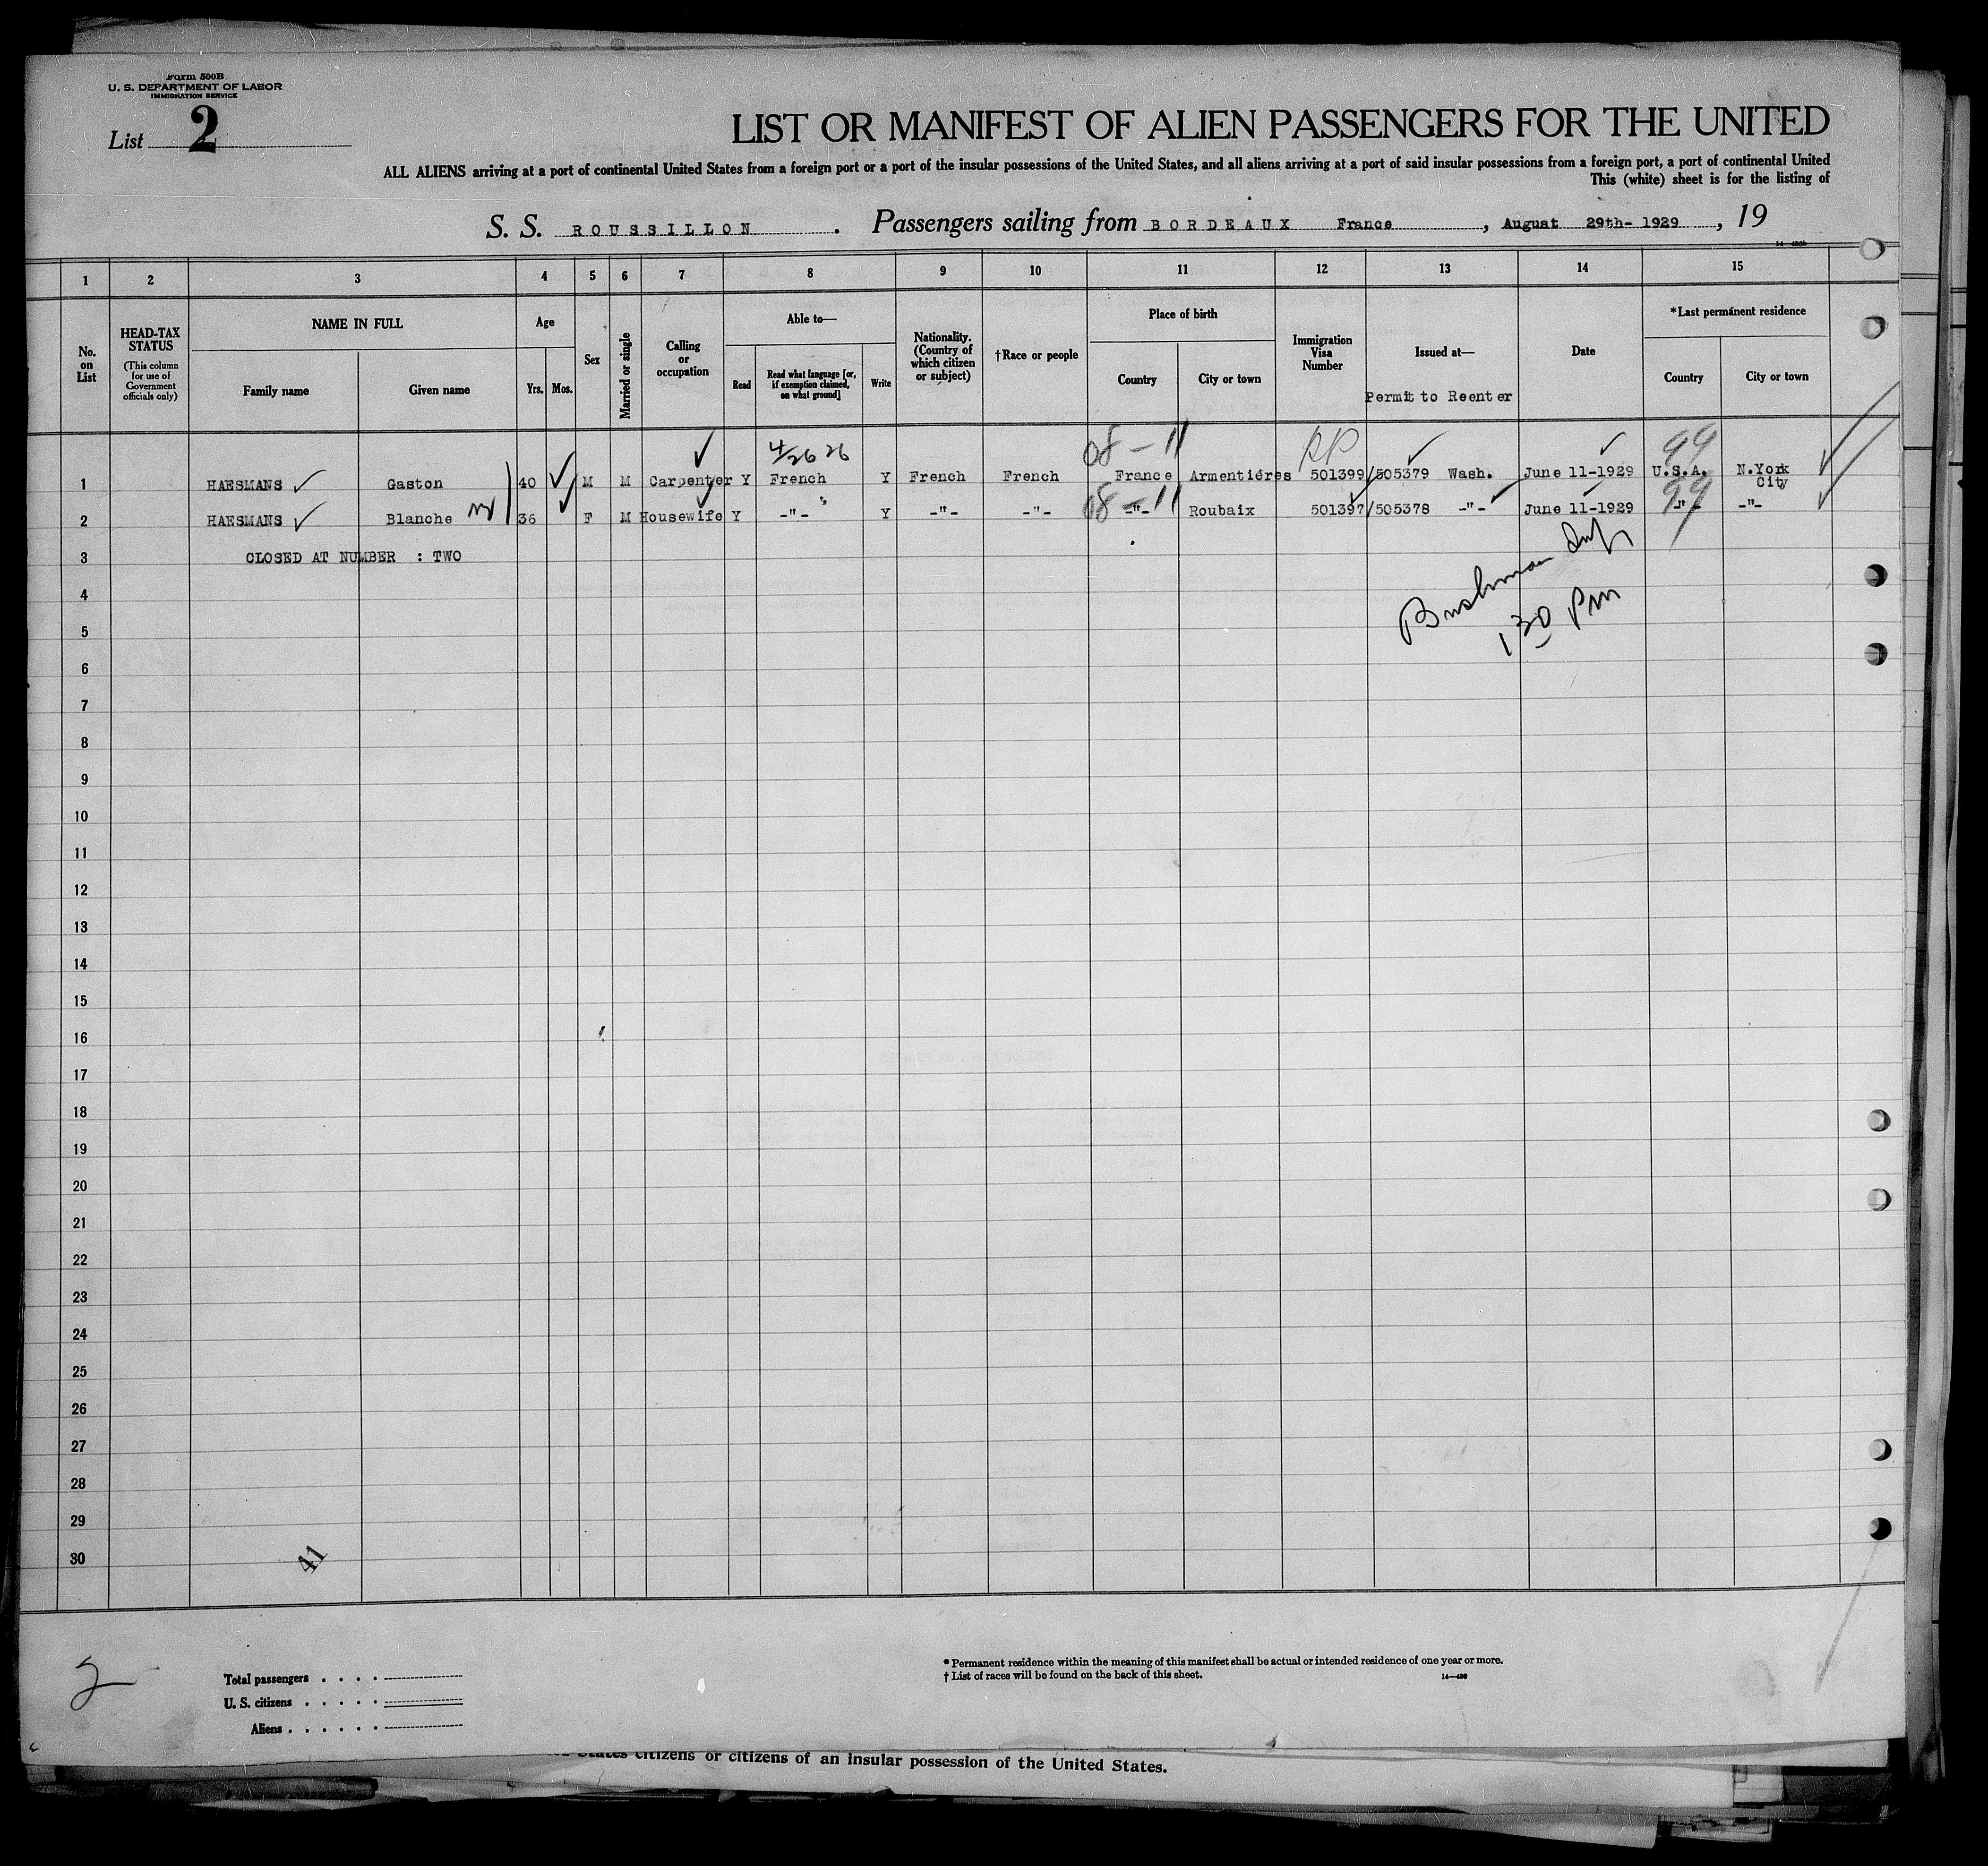 Form 500B
U. S. DEPARTMENT OF LABOR
IMMIGRATION SERVICE
List 2
LIST OR MANIFEST OF ALIEN PASSENGERS FOR THE UNITED
ALL ALIENS arriving at a port of continental United States from a foreign port or a port of the insular possessions of the United States, and all aliens arriving at a port of said insular possessions from a foreign port, a port of continental United
This (white) sheet is for the listing of
S. S. ROUSSILLON . Passengers sailing from BORDEAUX France , August 29th- 1929 , 19
1 2 3 4 5 6 7 8 9 10 11 12 13 14 15
No. on List
HEAD-TAX STATUS
(This column for use of Government officials only)
NAME IN FULL
Family name Given name
Age
Yrs. Mos.
Sex
Married or single
Calling or occupation
Able to—
Read
Read what language [or, if exemption claimed, on what ground]
Write
Nationality. (Country of which citizen or subject)
†Race or people
Place of birth
Country City or town
Immigration Visa Number
Issued at—
Permit to Reenter
Date
*Last permanent residence
Country City or town
4/26 26 08 - 11 RP 99
1 HAESMANS Gaston 40 M M Carpenter Y French Y French French France Armentiéres 501399/505379 Wash. June 11-1929 U.S.A. N.York City
08 - 11 99
2 HAESMANS Blanche 36 F M Housewife Y -"- Y -"- -"- -"- Roubaix 501397/505378 -"- June 11-1929 -"- -"-
3 CLOSED AT NUMBER : TWO
4
5
Bushman
1 30 Pm
6
7
8
9
10
11
12
13
14
15
16
17
18
19
20
21
22
23
24
25
26
27
28
29
30
41
2
Total passengers . . . .
U. S. citizens . . . . .
Aliens . . . . . .
* Permanent residence within the meaning of this manifest shall be actual or intended residence of one year or more.
† List of races will be found on the back of this sheet.
States citizens or citizens of an insular possession of the United States.